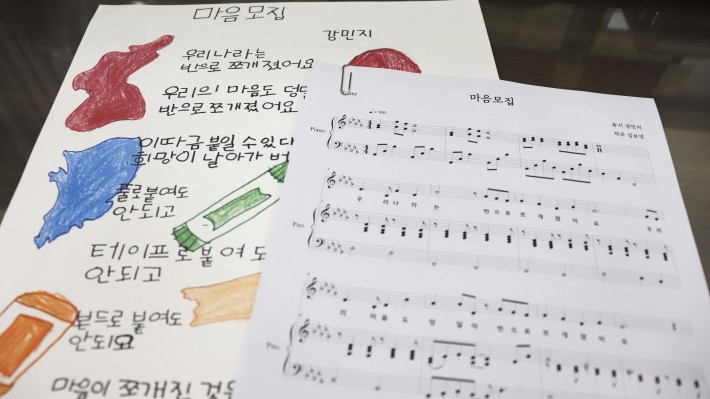 마음모집
강민지
우리나라는
반으로 쪼개졌어요
우리의 마음도 덩달
반으로 쪼개졌어요
이따금 붙일 수 있다
희망이 날아가 버
풀로 붙여도
안되고
테이프로 붙여도
안되고
본드로 붙여도
안되요
마음이 쪼개진 것은
마음모집
동시 강민지
작곡 김보영
Piano
우 리 나 라 는 반 으 로 쪼 개 졌 어 요 우 리
Pno.
의 마 음 도 덩 달 아 반 으 로 쪼 개 졌 어 요
Pno.